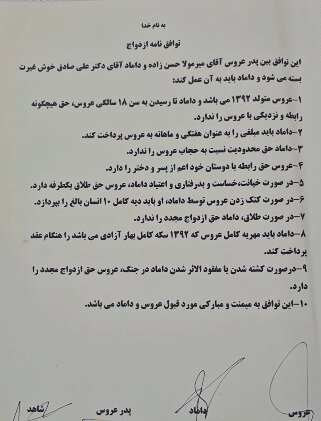 به نام خدا
توافق نامه ازدواج
این توافق بین پدر عروس آقای میرمولا حسن زاده و داماد آقای دکتر علی صادق خوش غیرت
بسته می شود و داماد باید به آن عمل کند:
۱-عروس متولد ۱۳۹۲ می باشد و داماد تا رسیدن به سن ۱۸ سالگی عروس، حق هیچگونه
رابطه و نزدیکی با عروس را ندارد.
۲-داماد باید مبلغی را به عنوان هفتگی و ماهانه به عروس پرداخت کند.
۳-داماد حق محدودیت نسبت به حجاب عروس را ندارد.
۴-عروس حق رابطه با دوستان خود اعم از پسر و دختر را دارد.
۵-در صورت خیانت،خساست و بدرفتاری و اعتیاد داماد، عروس حق طلاق یکطرفه دارد.
۶-در صورت کتک زدن عروس توسط داماد، او باید دیه کامل ۱۰ انسان بالغ را بپردازد.
۷-در صورت طلاق، داماد حق ازدواج مجدد را ندارد.
۸-داماد باید مهریه کامل عروس که ۱۳۹۲ سکه کامل بهار آزادی می باشد را هنگام عقد
پرداخت کند.
۹-درصورت کشته شدن یا مفقود الاثر شدن داماد در جنگ، عروس حق ازدواج مجدد را
دارد.
۱۰-این توافق به میمنت و مبارکی مورد قبول عروس و داماد می باشد.
عروس داماد پدر عروس شاهد